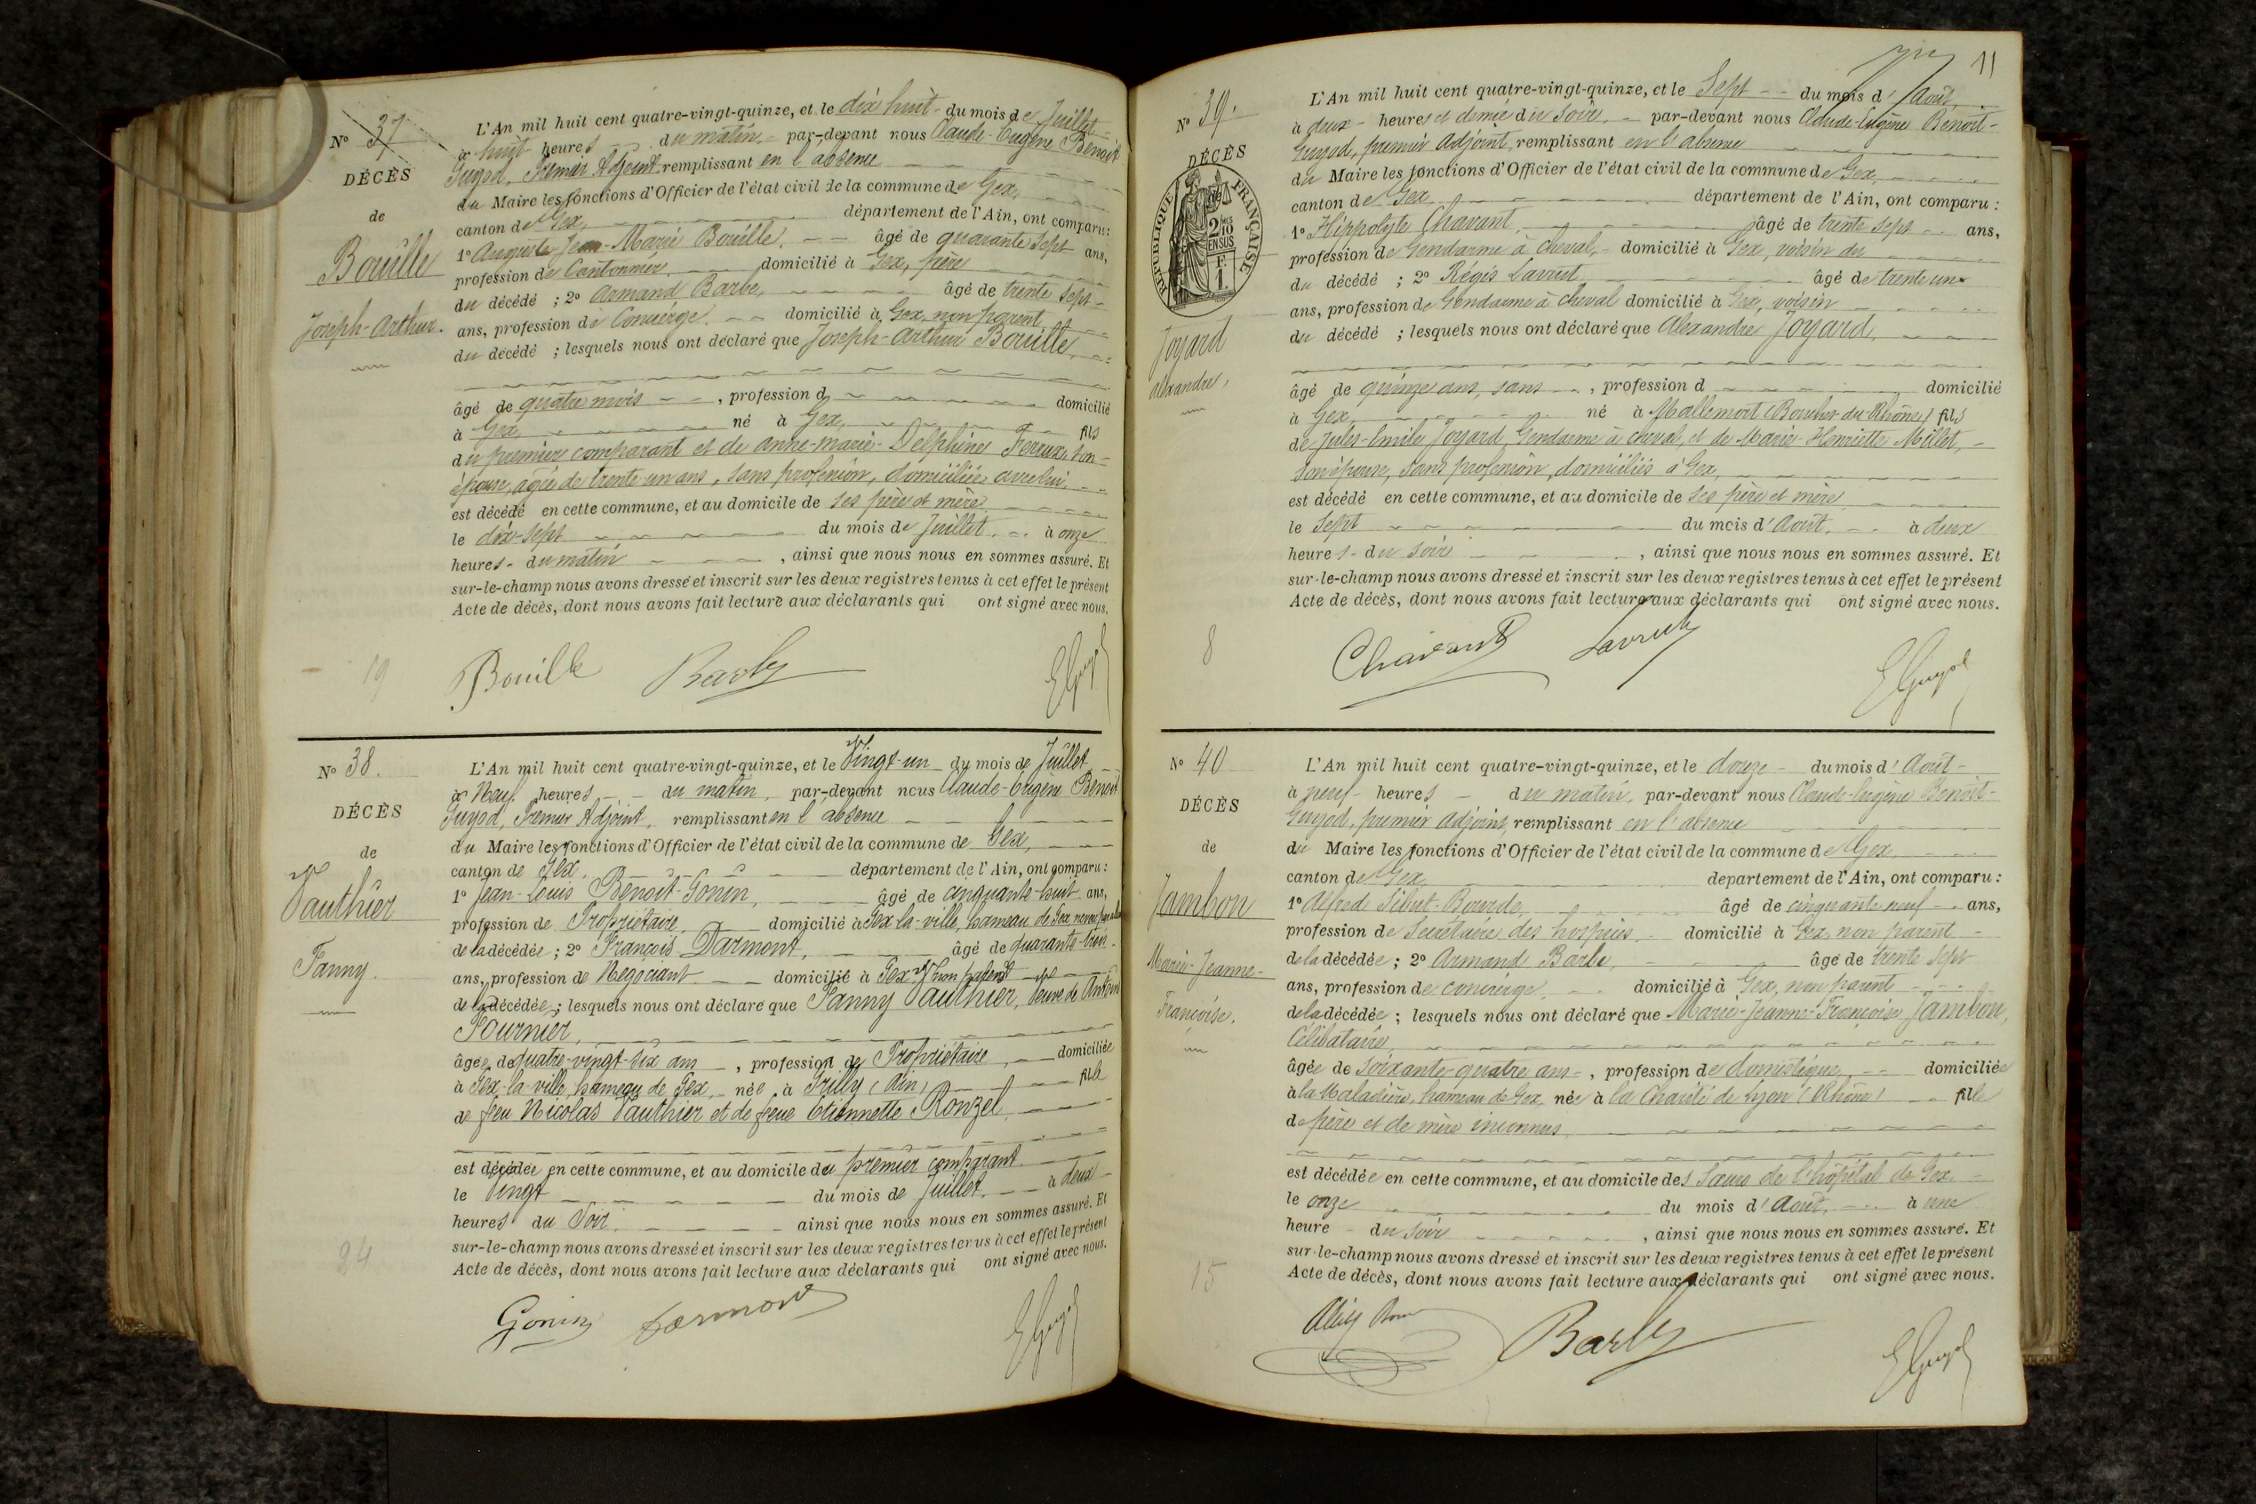 Nº 37
DÉCÈS
de
Bouille
Joseph-Arthur.
L'An mil huit cent quatre-vingt-quinze, et le dix huit du mois de Juillet
à huit heures du matin par-devant nous Claude-Eugène Benoit
Guyod, Premier Adjoint remplissant en l'absence
du Maire les fonctions d'Officier de l'état civil de la commune de Gex,
canton de Gex département de l'Ain, ont comparu:
1º Auguste Jean-Marie Bouille, âgé de quarante sept ans,
profession de Cantonnier domicilié à Gex, père
du décédé ; 2º Armand Barbe, âgé de trente sept
ans, profession de Concierge domicilié à Gex, non parent
du décédé ; lesquels nous ont déclaré que Joseph-Arthur Bouille,
âgé de quatre mois , profession d domicilié
à Gex né à Gex, fils
du premier comparant et de Anne-Marie-Delphine son
épouse, âgée de trente un ans, sans profession, domiciliée avec lui
est décédé en cette commune, et au domicile de ses père et mère
le dix-sept du mois de Juillet à onze
heures du matin , ainsi que nous nous en sommes assuré. Et
sur-le-champ nous avons dressé et inscrit sur les deux registres tenus à cet effet le présent
Acte de décès, dont nous avons fait lecture aux déclarants qui ont signé avec nous.
19
Bouille Barbe E Guyod
Nº 38.
DÉCÈS
de
Vauthier
Fanny.
L'An mil huit cent quatre-vingt-quinze, et le Vingt-un du mois de Juillet
à Neuf heures du matin par-devant nous Claude-Eugène Benoit
Guyod, Premier Adjoint, remplissant en l'absence
du Maire les fonctions d'Officier de l'état civil de la commune de Gex,
canton de Gex. département de l'Ain, ont comparu:
1º Jean-Louis Benoit-Gonin, âgé de cinquante-huit ans,
profession de Propriétaire domicilié à Gex-la-ville, hameau de Gex, neveu
de la décédée; 2º François Darmont, âgé de quarante-trois
ans, profession de Négociant domicilié à Gex, non parent
de la décédée; lesquels nous ont déclaré que Fanny Vauthier, Veuve de Antoine
Fournier,
âgée de quatre-vingt-six ans , profession de Propriétaire, domiciliée
à Gex-la-ville, hameau de Gex, née à Grilly (Ain) fille
de feu Nicolas Vauthier et de feue Etiennette Ronzel
est décédée en cette commune, et au domicile du premier comparant
le Vingt du mois de Juillet à deux
heures du Soir ainsi que nous nous en sommes assuré. Et
sur-le-champ nous avons dressé et inscrit sur les deux registres tenus à cet effet le présent
Acte de décès, dont nous avons fait lecture aux déclarants qui ont signé avec nous.
24
Gonin Darmont E Guyod
11
Nº 39.
DÉCÈS
RÉPUBLIQUE FRANÇAISE
2/10 EN SUS
F. 1
Joyard
Alexandre,
L'An mil huit cent quatre-vingt-quinze, et le Sept du mois d'Août,
à deux heures et demie du soir, par-devant nous Claude-Eugène Benoit-
Guyod, premier Adjoint, remplissant en l'absence
du Maire les fonctions d'Officier de l'état civil de la commune de Gex,
canton de Gex département de l'Ain, ont comparu :
1º Hippolyte Chavant, âgé de trente sept ans,
profession de Gendarme à cheval, domicilié à Gex, voisin du
du décédé ; 2º Régis Lavrut âgé de trente un
ans, profession de Gendarme à cheval domicilié à Gex, voisin
du décédé ; lesquels nous ont déclaré que Alexandre Joyard,
âgé de quinze ans, sans , profession d domicilié
à Gex né à Mallemort (Bouches-du-Rhône) fils
de Jules-Emile Joyard, Gendarme à cheval, et de Marie-Henriette Millet,
son épouse, sans profession, domiciliés à Gex,
est décédé en cette commune, et au domicile de ses père et mère
le sept du mois d'Août, à deux
heures du soir , ainsi que nous nous en sommes assuré. Et
sur-le-champ nous avons dressé et inscrit sur les deux registres tenus à cet effet le présent
Acte de décès, dont nous avons fait lecture aux déclarants qui ont signé avec nous.
8
Chavant Lavrut E Guyod
Nº 40
DÉCÈS
de
Jambon
Marie-Jeanne-
Françoise.
L'An mil huit cent quatre-vingt-quinze, et le douze du mois d'Août
à neuf heures du matin, par-devant nous Claude-Eugène Benoit-
Guyod, premier Adjoint, remplissant en l'absence
du Maire les fonctions d'Officier de l'état civil de la commune de Gex
canton de Gex département de l'Ain, ont comparu :
1º Alfred Sibut-Bourde, âgé de cinquante neuf ans,
profession de Secrétaire des hospices domicilié à Gex, non parent
de la décédée ; 2º Armand Barbe, âgé de trente sept
ans, profession de concierge domicilié à Gex, non parent
de la décédée ; lesquels nous ont déclaré que Marie-Jeanne-Françoise Jambon,
Célibataire,
âgée de soixante-quatre ans , profession de domestique, domiciliée
à la Maladière, hameau de Gex, née à la Charité de Lyon (Rhône) fille
de père et de mère inconnus
est décédée en cette commune, et au domicile des Sœurs de l'hôpital de Gex
le onze du mois d'Août, à une
heure du soir , ainsi que nous nous en sommes assuré. Et
sur-le-champ nous avons dressé et inscrit sur les deux registres tenus à cet effet le présent
Acte de décès, dont nous avons fait lecture aux déclarants qui ont signé avec nous.
15
Barbe E Guyod